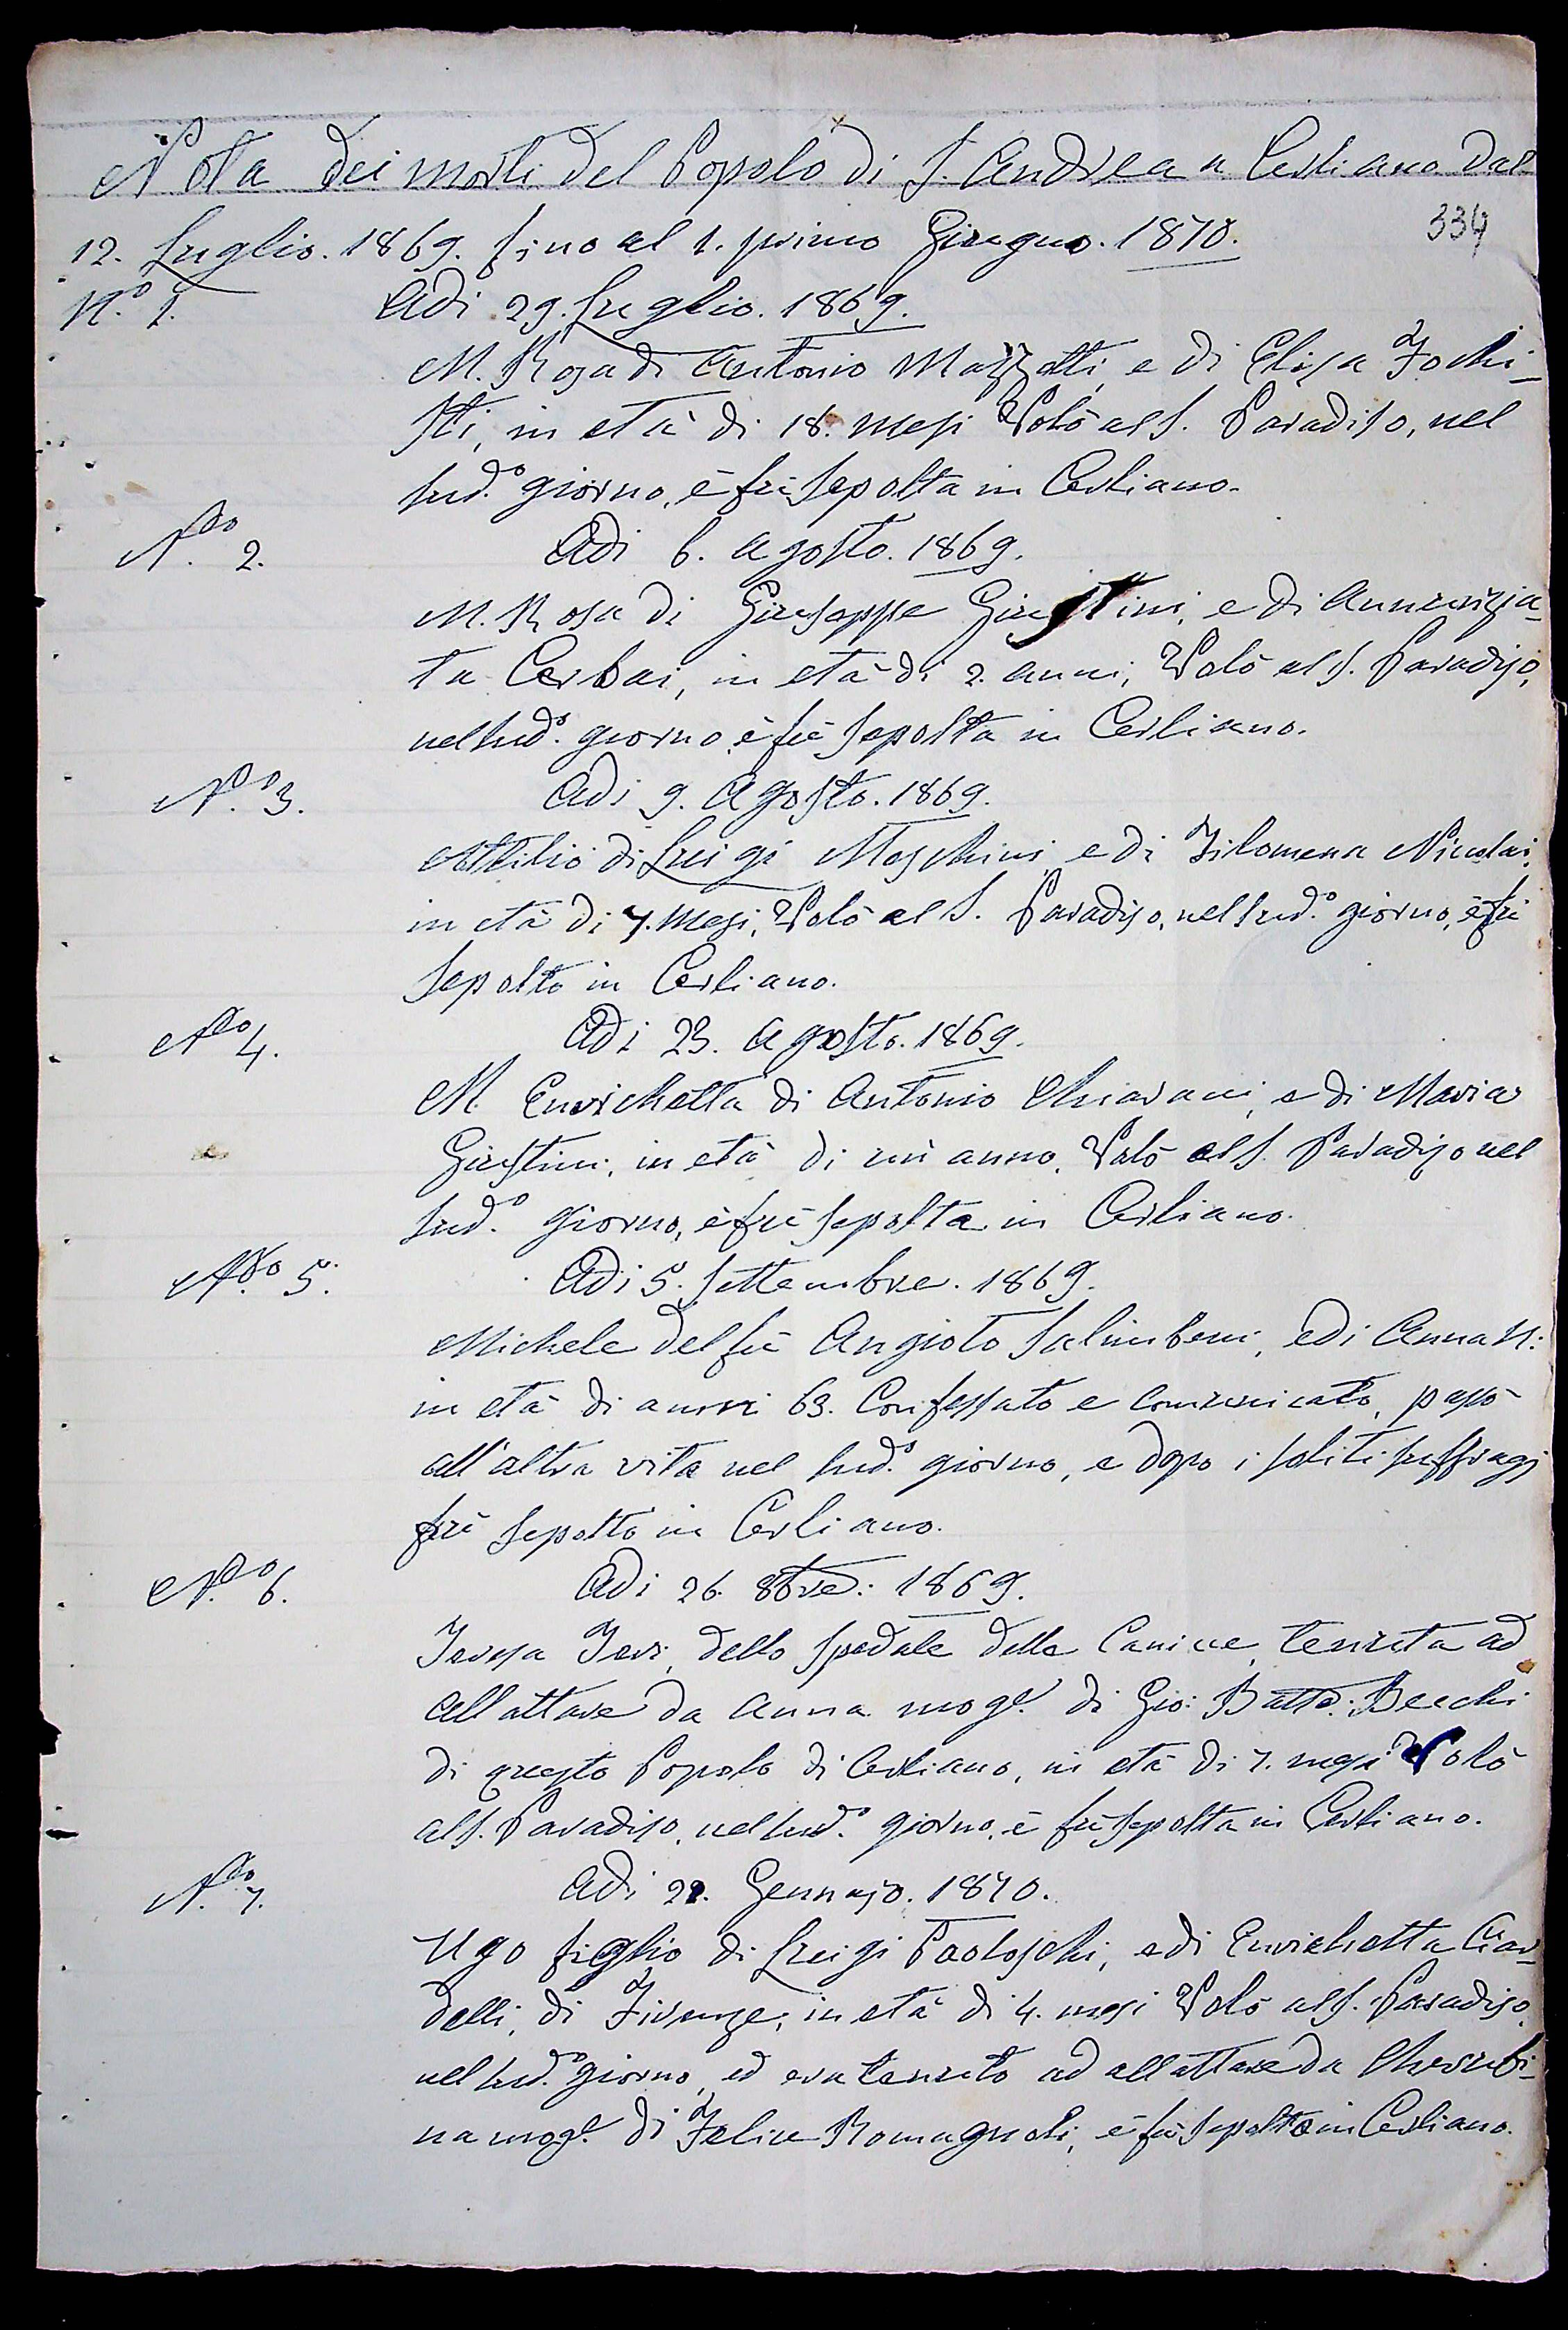 Nota dei morti del Popolo di S. Andrea a Cerliano dal
12. Luglio. 1869. fino al 1. primo Giugno. 1870.
334
N.o 1.
Adi 29. Luglio. 1869.
M. Rosa di Antonio Mazzotti, e di Elisa Fochi-
sti, in età di 18. mesi Volò al S. Paradiso, nel
sud.o giorno, è fù sepolta in Cerliano.
N.o 2.
Adi 6. Agosto. 1869.
M. Rosa di Giuseppe Giustini, e di Annunzia-
ta Cerbai, in età di 2. anni, Volò al S. Paradiso,
nel sud.o giorno, è fù sepolta in Cerliano.
N.o 3.
Adi 9. Agosto. 1869.
Attilio di Luigi Moschini, e di Filomena Nicolai,
in età di 7. mesi, Volò al S. Paradiso, nel sud.o giorno, è fù
sepolto in Cerliano.
N.o 4.
Adi 23. Agosto. 1869.
M. Enrichetta di Antonio Chiarani, e di Maria
Giustini, in età di un anno, Volò al S. Paradiso nel
sud.o giorno, è fù sepolta in Cerliano.
N.o 5.
Adi 5. Settembre. 1869.
Michele del fù Angiolo Salimbeni, e di Anna N:
in età di anni 63. Confessato e comunicato, passò
all'altra vita nel sud.o giorno, e dopo i soliti suffragj
fù sepolto in Cerliano.
N.o 6.
Adi 26. 8bre: 1869.
dello Spedale delle Canice, tenuta ad
allattare da Anna mogl.e di Gio: Batta: Becchi
di questo Popolo di Cerliano, in età di 7. mesi Volò
al S. Paradiso, nel sud.o giorno, è fù sepolta in Cerliano.
N.o 7.
Adi 22. Gennajo. 1870.
Ugo figlio di Luigi Paoloschi, e di Enrichetta Ciar-
delli, di Firenze, in età di 4. mesi Volò al S. Paradiso,
nel sud.o giorno, ed era tenuto ad allattare da Cherubi-
na mogl.e di Felice Romagnoli, è fù sepolto in Cerliano.